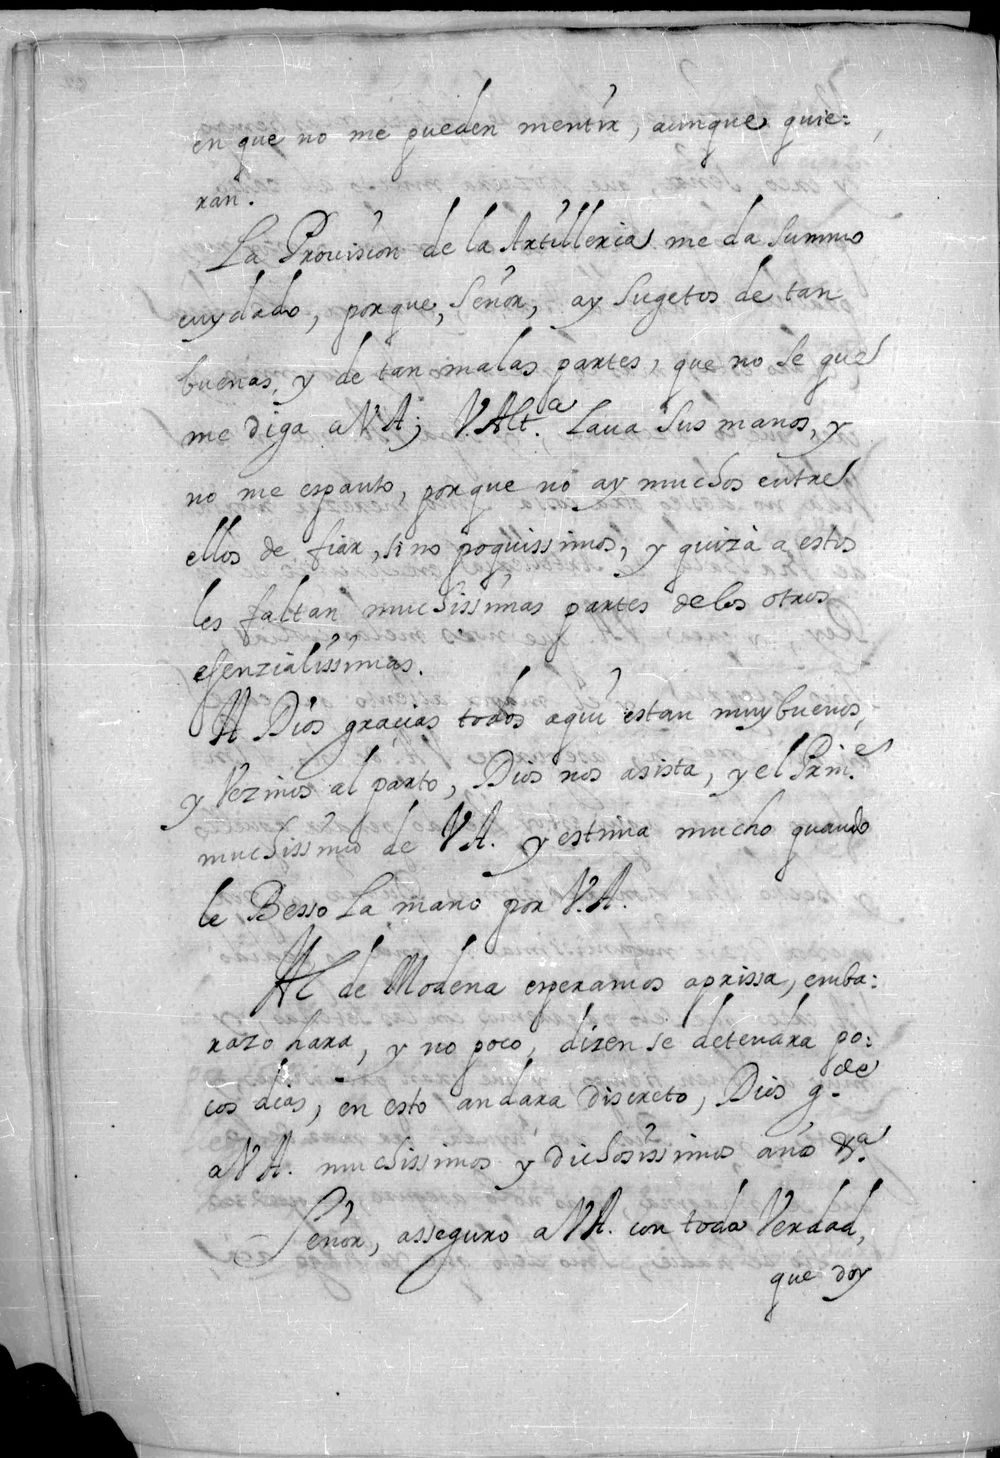 en que no me pueden mentir, aunque quie:
ran.
La Provision de la Artilleria me da Summo
cuydado, porque, Señor, ay Sugetos de tan
buenas, y de tan malas partes, que no Se que
me diga a V A; V. Alt.ª Laua Sus manos, y
no me espanto, porque no ay muchos entre
ellos de fiar, si no poquissimos, y quizà a estos
les faltan muchissimas partes de los otros
esenzialissimas.
A Dios gracias todos aqui estan muy buenos,
y Vezinos al parto, Dios nos asista, y el Prin.e
muchissimo de V A. y estima mucho quando
le Besso La mano por V. A.
Al de Modena esperamos aprissa, emba:
razo harà, y no poco, dizen se detendra po:
cos dias, en esto andara discreto, Dios g.de
a V A. muchissimos y dichosissimos años &.ª
Señor, asseguro a V A. con toda Verdad,
que doy